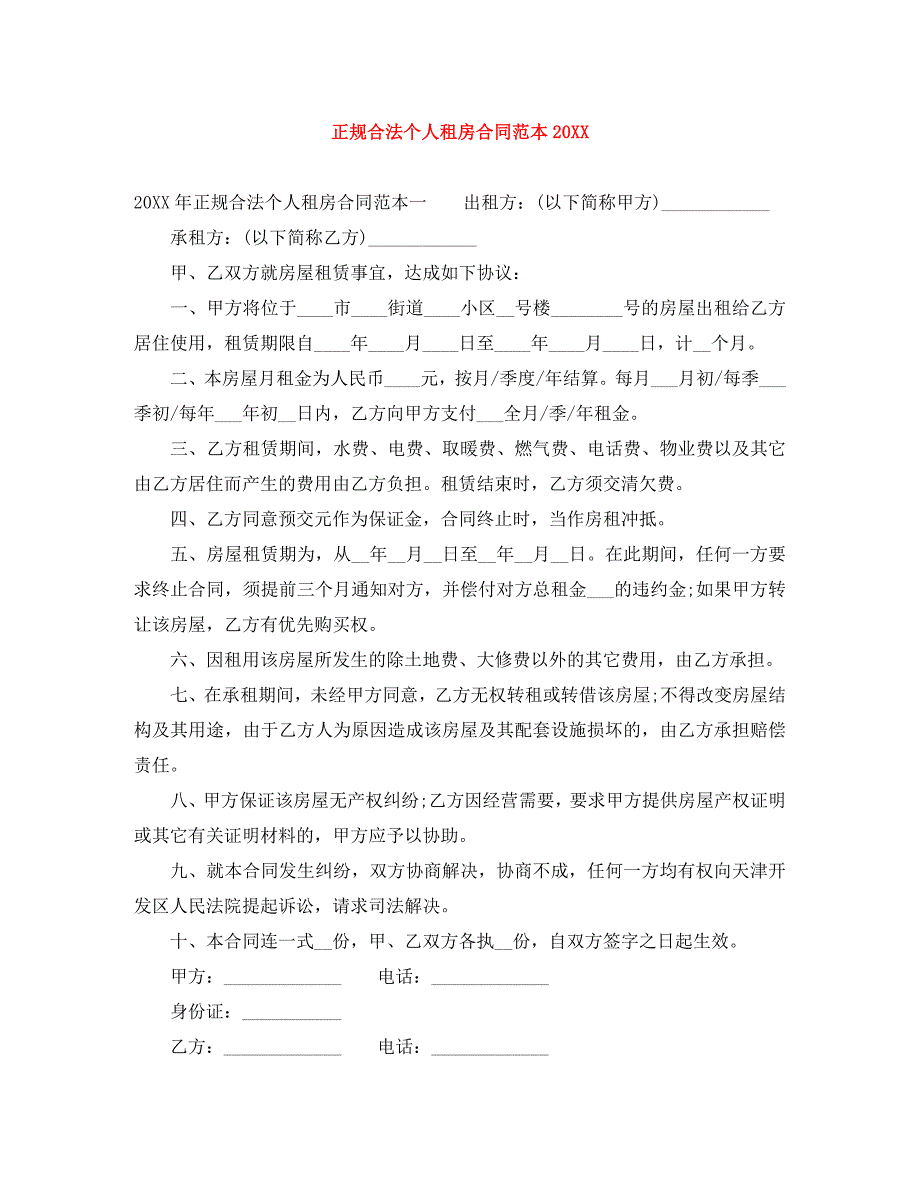 正规合法个人租房合同范本20XX
20XX 年正规合法个人租房合同范本一　　出租方：(以下简称甲方)____________
承租方：(以下简称乙方)____________
甲、乙双方就房屋租赁事宜，达成如下协议：
一、甲方将位于____市____街道____小区__号楼________号的房屋出租给乙方
居住使用，租赁期限自____年____月____日至____年____月____日，计__个月。
二、本房屋月租金为人民币____元，按月/季度/年结算。每月___月初/每季___
季初/每年___年初__日内，乙方向甲方支付___全月/季/年租金。
三、乙方租赁期间，水费、电费、取暖费、燃气费、电话费、物业费以及其它
由乙方居住而产生的费用由乙方负担。租赁结束时，乙方须交清欠费。
四、乙方同意预交元作为保证金，合同终止时，当作房租冲抵。
五、房屋租赁期为，从__年__月__日至__年__月__日。在此期间，任何一方要
求终止合同，须提前三个月通知对方，并偿付对方总租金___的违约金;如果甲方转
让该房屋，乙方有优先购买权。
六、因租用该房屋所发生的除土地费、大修费以外的其它费用，由乙方承担。
七、在承租期间，未经甲方同意，乙方无权转租或转借该房屋;不得改变房屋结
构及其用途，由于乙方人为原因造成该房屋及其配套设施损坏的，由乙方承担赔偿
责任。
八、甲方保证该房屋无产权纠纷;乙方因经营需要，要求甲方提供房屋产权证明
或其它有关证明材料的，甲方应予以协助。
九、就本合同发生纠纷，双方协商解决，协商不成，任何一方均有权向天津开
发区人民法院提起诉讼，请求司法解决。
十、本合同连一式__份，甲、乙双方各执__份，自双方签字之日起生效。
甲方：_____________　　电话：_____________
身份证：___________
乙方：_____________　　电话：_____________